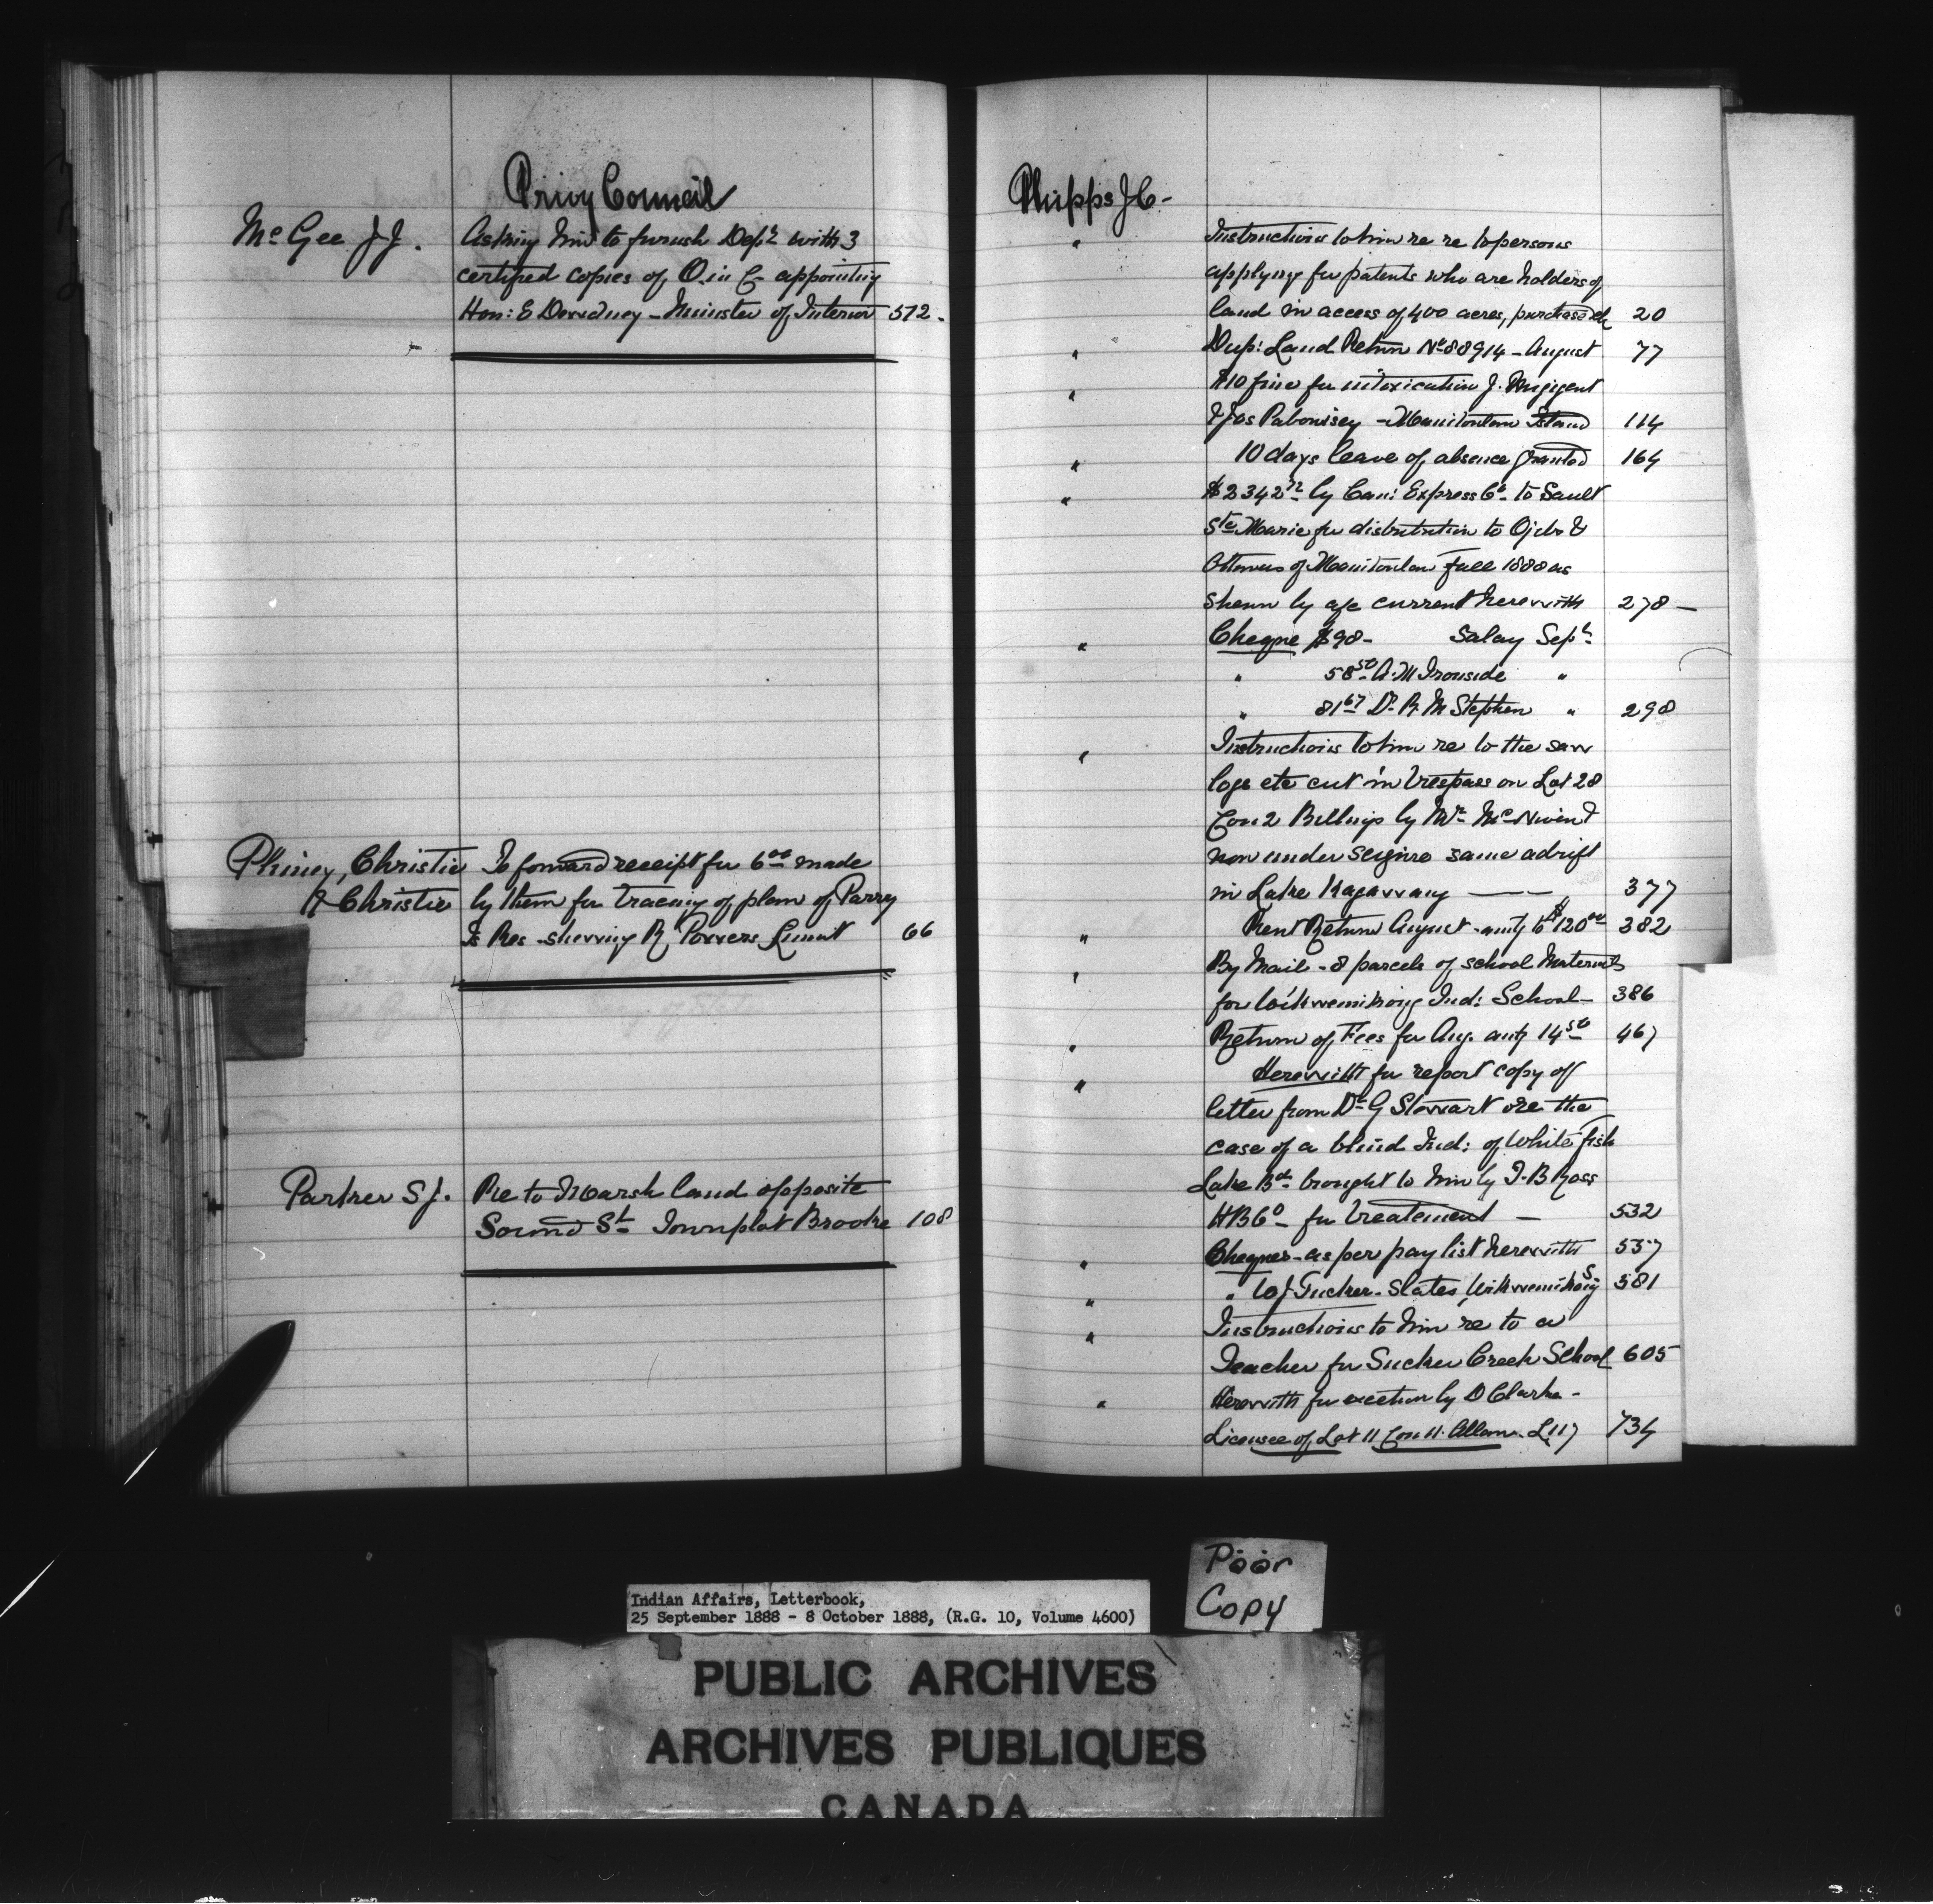 Privy Council
McGee J J. Asking him to furnish Dept with 3
certified copies of O. in C- appointing
Hon: E Dewdney - Minister of Interior 572.
Phiney, Christie To forward receipt for 6.00 made
& Christie by them for tracing of plan of Parry
Is Res - shewing R. Powers Limit 66
Parker S J. Re to Marsh land opposite
Sound St Townplot Brooke 108
Phipps J C-
" Instructions to him re re to persons
applying for patents who are holders of
land in access of 400 acres, purchased &c 20
" Dup: Land Return No 88914 - August 77
" $10 fine for intoxication J.
& Jos Pabowisey - Manitoulin Island 114
" 10 days leave of absence granted 164
" $2342 72 by Can: Express Co - to Sault
Ste Marie for distribution to Ojeb. &
Ottawas of Manitoulin Fall 1888 as
shewn by a/c current herewith 278 -
" Cheque $90 - Salary Sept
" 58 50 A. M Ironside "
" 81 67 Dr R. M Stephen " 298
" Instructions to him re to the saw
logs etc cut in trespass on Lot 28
Con 2 Billings by Mr McNiven &
now under seizure same adrift
in Lake Kagawang — 377
" Rent Return August - amtg to $120 00 382
" By Mail - 8 parcels of school Materials
for Wikwemikong Ind: School - 386
" Return of Fees for Aug. amtg 14 50 467
" Herewith for report copy of
letter from Dr G Stewart re the
case of a blind Ind: of White fish
Lake Bd brought to him by T. B Ross
H B Co - for treatement — 532
" Cheques - as per pay list herewith 557
" " to J Tucker - Slates, Wikwemikong S. 581
" Instructions to him re to a
Teacher for Sucker Creek School 605
" Herewith for exection by D Clarke -
Licensee of Lot 11 Con 11. Allan. L 117 734
Poor
Copy
Indian Affairs, Letterbook,
25 September 1888 - 8 October 1888, (R.G. 10, Volume 4600)
PUBLIC ARCHIVES
ARCHIVES PUBLIQUES
CANADA